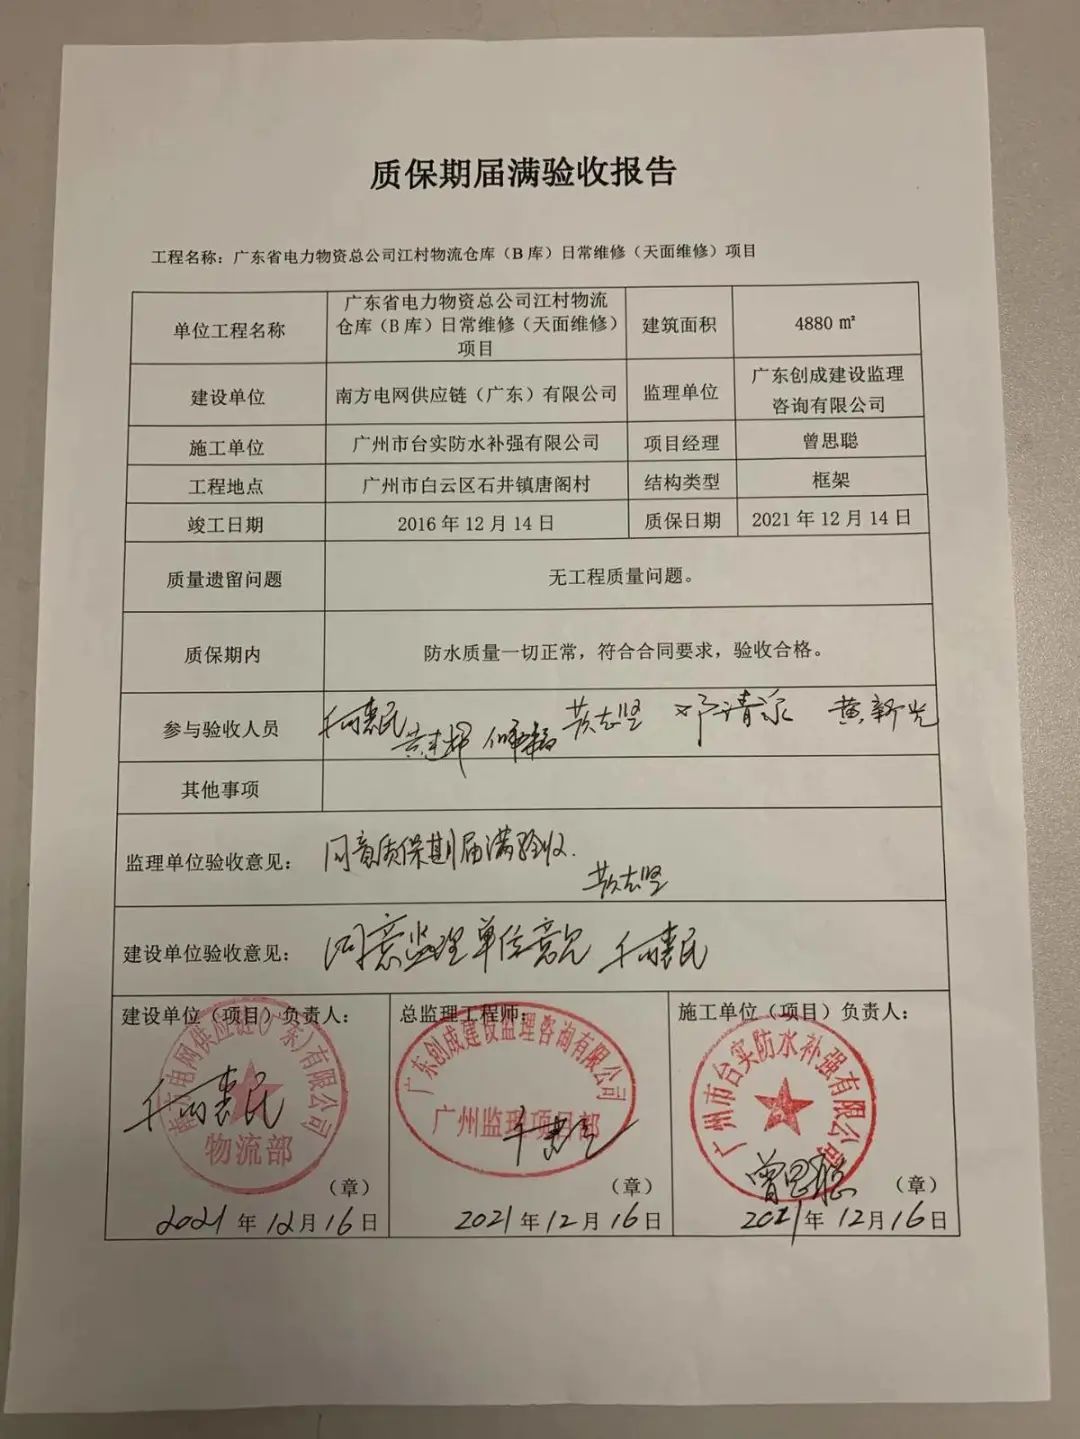 质保期届满验收报告
工程名称：广东省电力物资总公司江村物流仓库（B 库）日常维修（天面维修）项目
单位工程名称
广东省电力物资总公司江村物流
仓库（B 库）日常维修（天面维修）
项目
建筑面积
4880 ㎡
建设单位
南方电网供应链（广东）有限公司
监理单位
广东创成建设监理
咨询有限公司
施工单位
广州市台实防水补强有限公司
项目经理
曾思聪
工程地点
广州市白云区石井镇唐阁村
结构类型
框架
竣工日期
2016 年 12 月 14 日
质保日期
2021 年 12 月 14 日
质量遗留问题
无工程质量问题。
质保期内
防水质量一切正常，符合合同要求，验收合格。
参与验收人员
黄志坚 邓清泉 黄新光
其他事项
监理单位验收意见：
同意质保期届满验收.
黄志坚
建设单位验收意见：
同意监理单位意见
建设单位（项目）负责人：
南方电网供应链（广东）有限公司
物流部
（章）
2021 年 12 月 16 日
总监理工程师：
广东创成建设监理咨询有限公司
广州监理项目部
（章）
2021 年 12 月 16 日
施工单位（项目）负责人：
广州市台实防水补强有限公司
曾思聪
（章）
2021 年 12 月 16 日